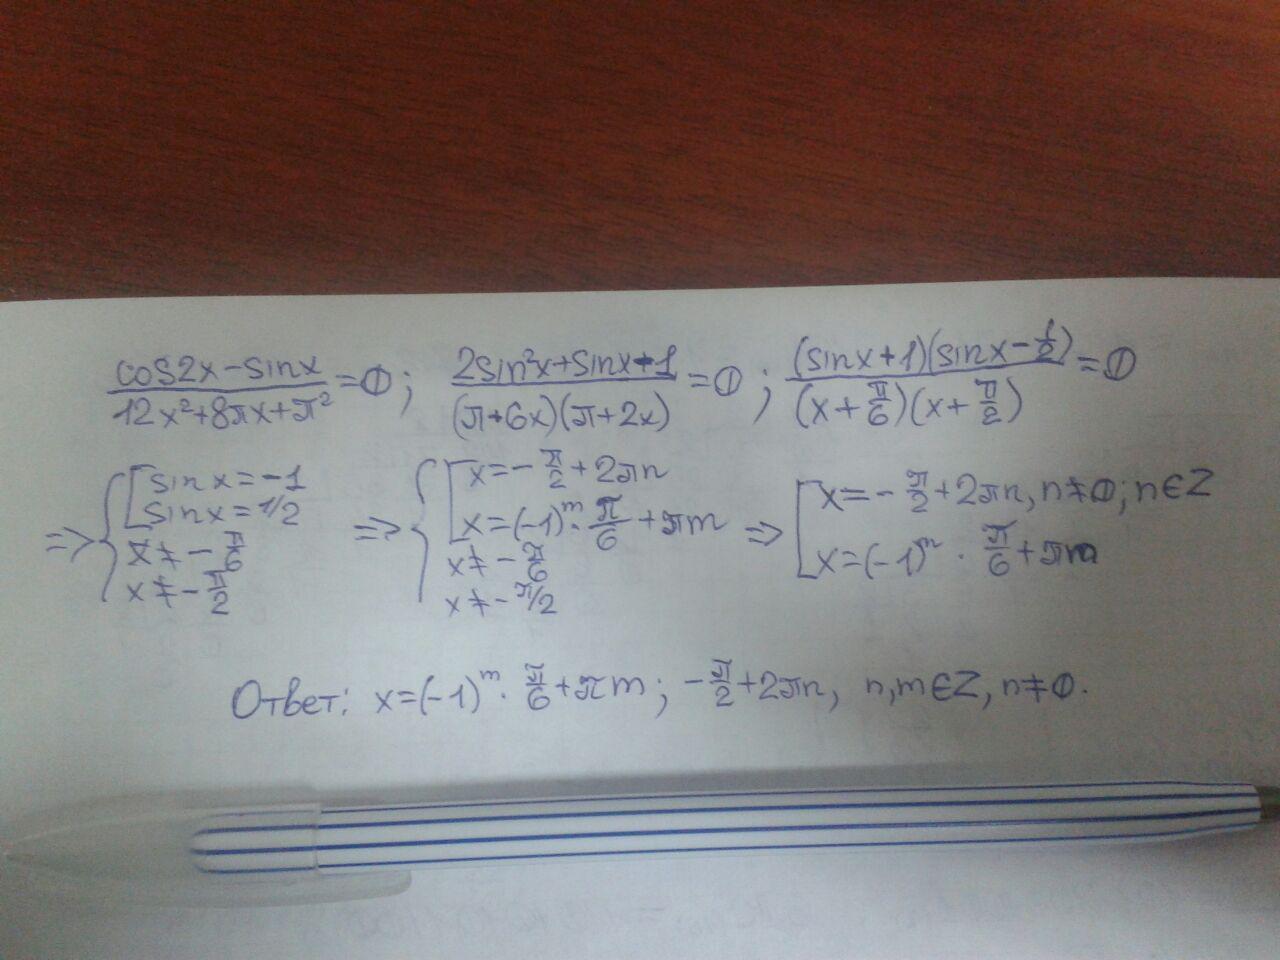 (cos2x − sinx)/(12x² + 8πx + π²) = 0; (2sin²x + sinx − 1)/((π + 6x)(π + 2x)) = 0; ((sinx + 1)(sinx − 1/2))/((x + π/6)(x + π/2)) = 0
⇒ { [ sin x = −1; sin x = 1/2 ]; x ≠ −π/6; x ≠ −π/2 ⇒ { [ x = −π/2 + 2πn; x = (−1)^m · π/6 + πm ]; x ≠ −π/6; x ≠ −π/2 ⇒ [ x = −π/2 + 2πn, n ≠ 0; n ∈ Z; x = (−1)^m · π/6 + πm
Ответ: x = (−1)^m · π/6 + πm; −π/2 + 2πn, n, m ∈ Z, n ≠ 0.